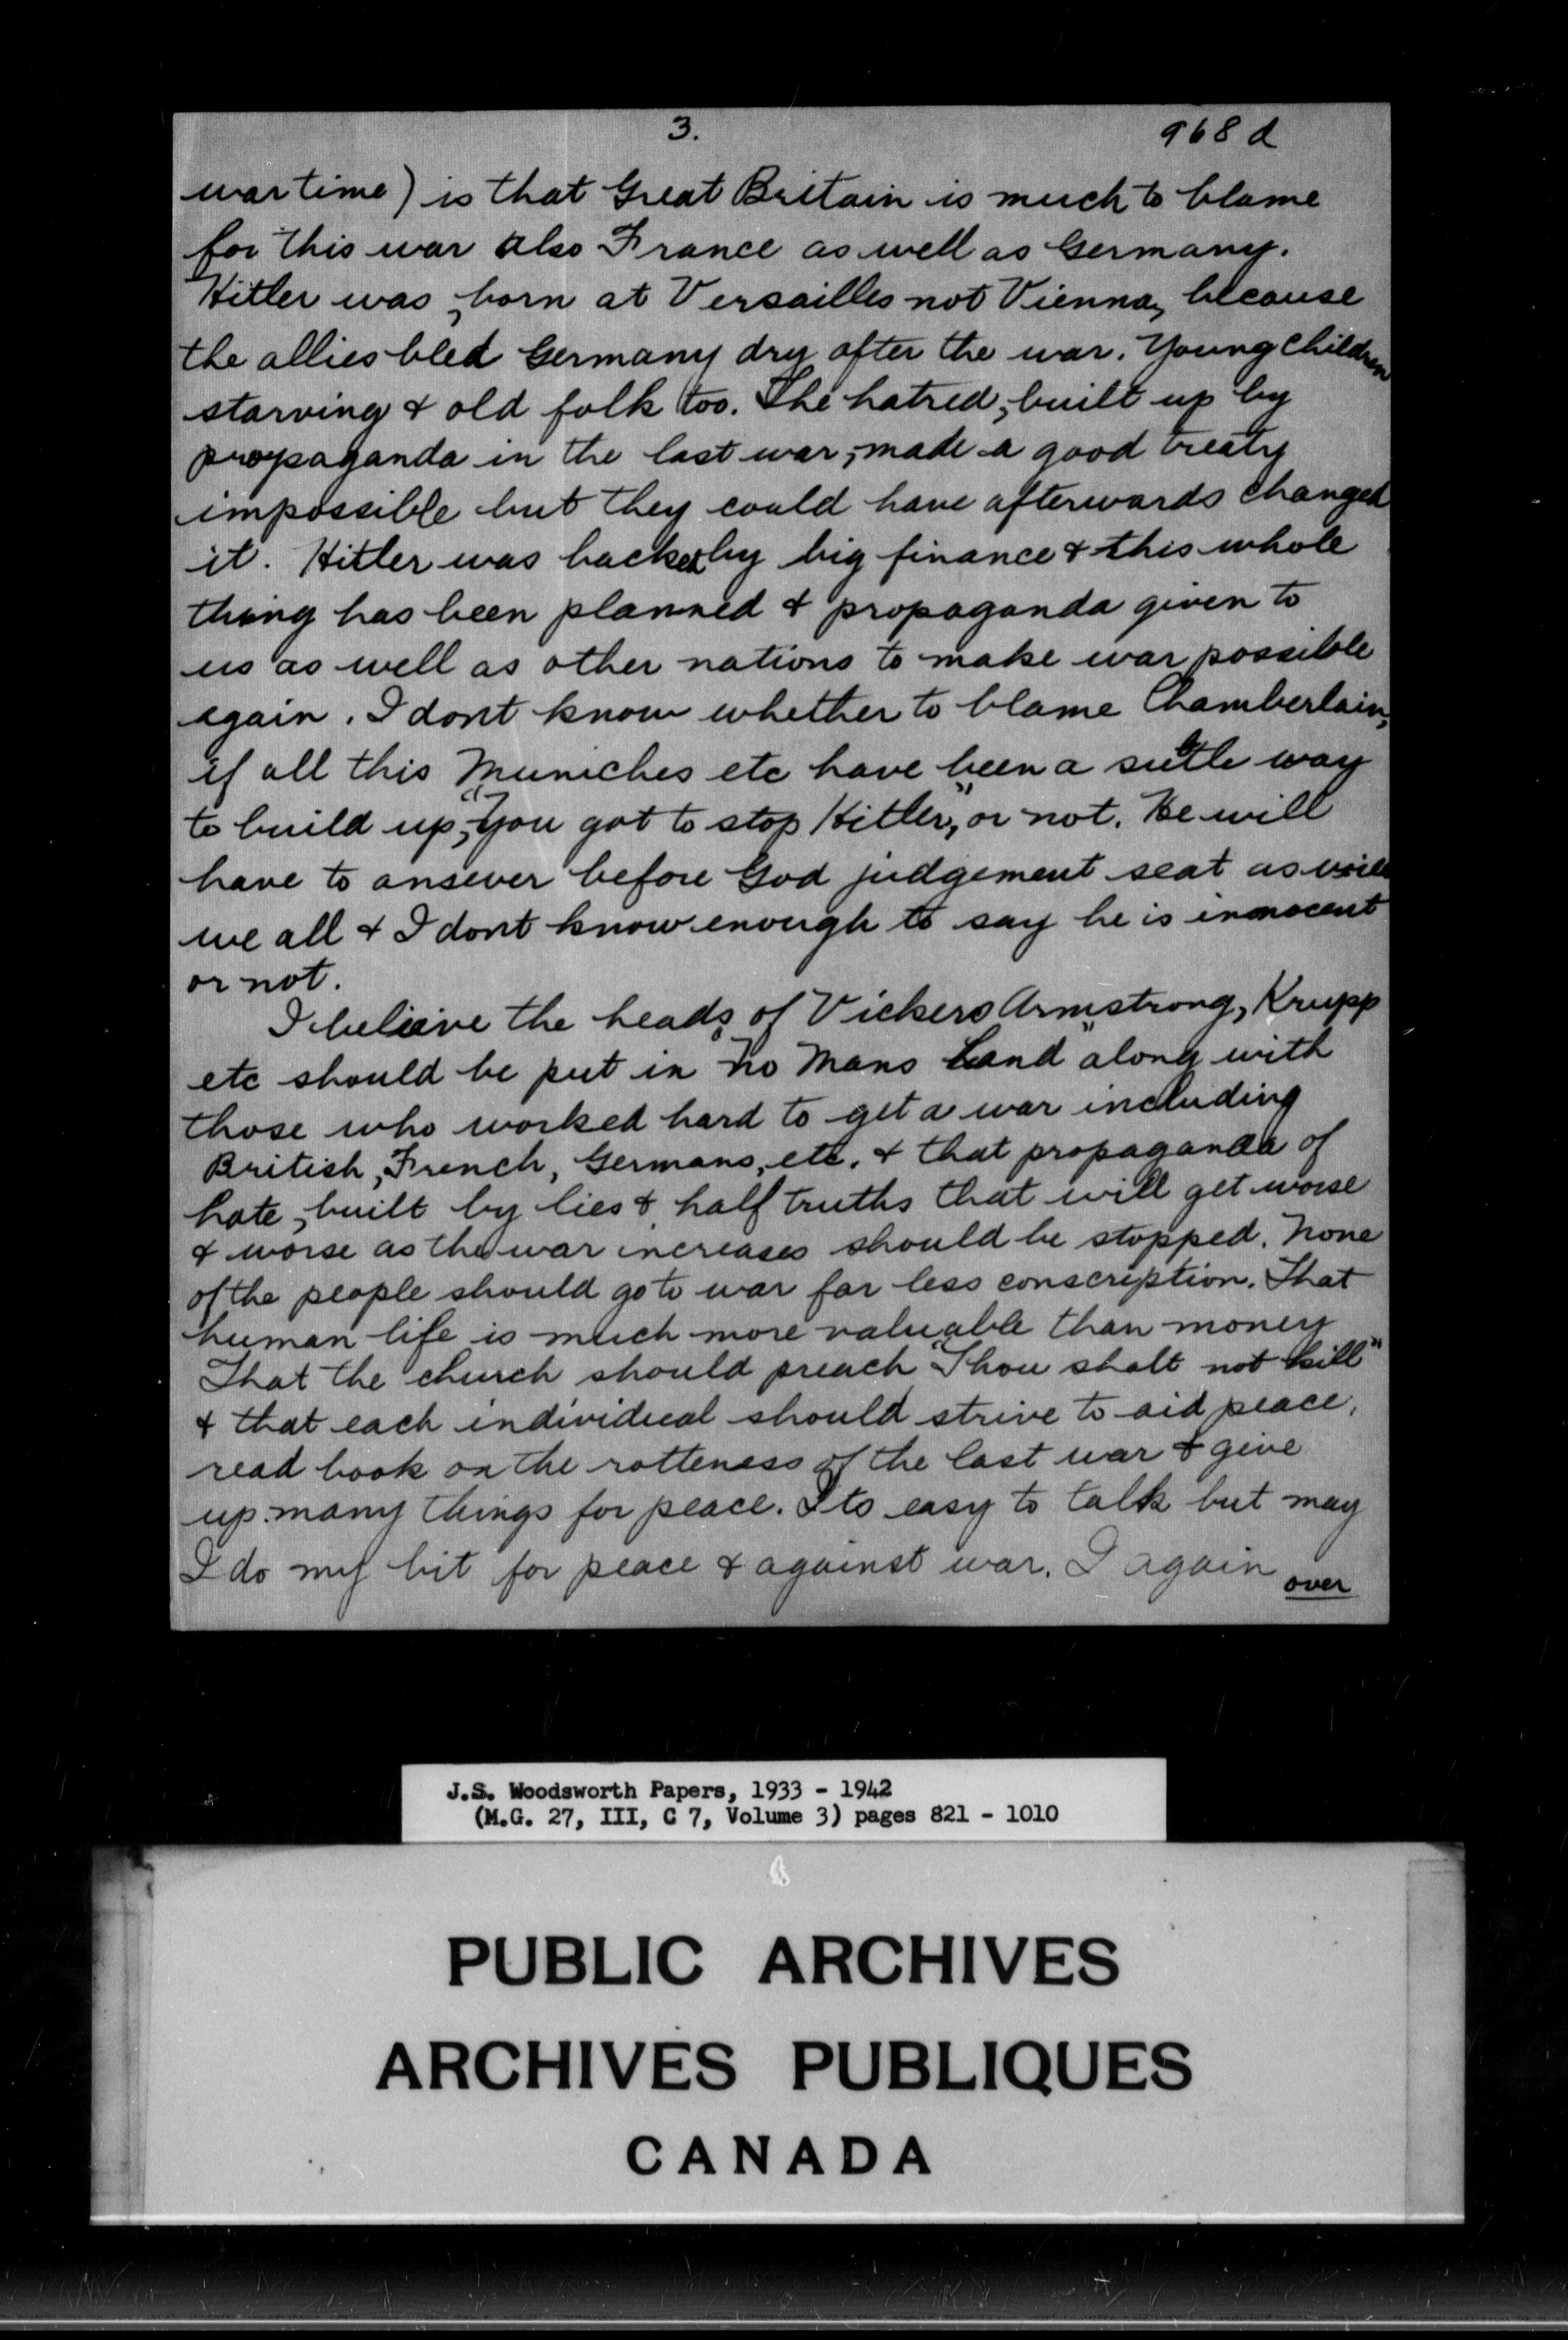 3.
968 d
war time) is that Great Britain is much to blame
for this war also France as well as Germany.
Hitler was, born at Versailles not Vienna, because
the allies bled Germany dry after the war. Young children
starving & old folk too. The hatred, built up by
propaganda in the last war, made a good treaty
impossible but they could have afterwards changed
it. Hitler was backed by big finance & this whole
thing has been planned & propaganda given to
us as well as other nations to make war possible
again. I dont know whether to blame Chamberlain,
if all this Muniches etc have been a suttle way
to build up, "you got to stop Hitler," or not. He will
have to answer before God judgement seat as will
we all & I dont know enough to say he is innocent
or not.
I believe the heads of Vickers Armstrong, Krupp
etc should be put in "No Mans Land" along with
those who worked hard to get a war including
British, French, Germans, etc. & that propaganda of
hate, built by lies & half truths that will get worse
& worse as the war increases should be stopped. None
of the people should go to war far less conscription. That
human life is much more valuable than money
That the church should preach "Thou shalt not kill"
& that each individual should strive to aid peace,
read book on the rotteness of the last war & give
up many things for peace. Its easy to talk but may
I do my bit for peace & against war. I again
over
J.S. Woodsworth Papers, 1933 - 1942
(M.G. 27, III, C 7, Volume 3) pages 821 - 1010
PUBLIC ARCHIVES
ARCHIVES PUBLIQUES
CANADA